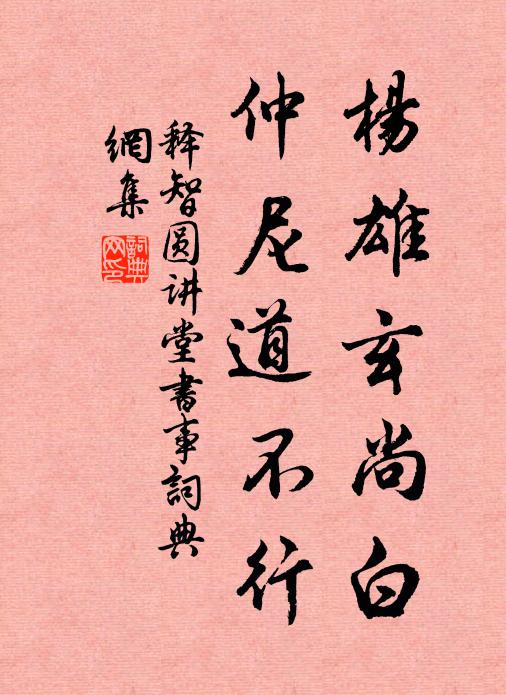 楊雄玄尚白
仲尼道不行
释智圆讲堂書事詞典
網集
詞典網印